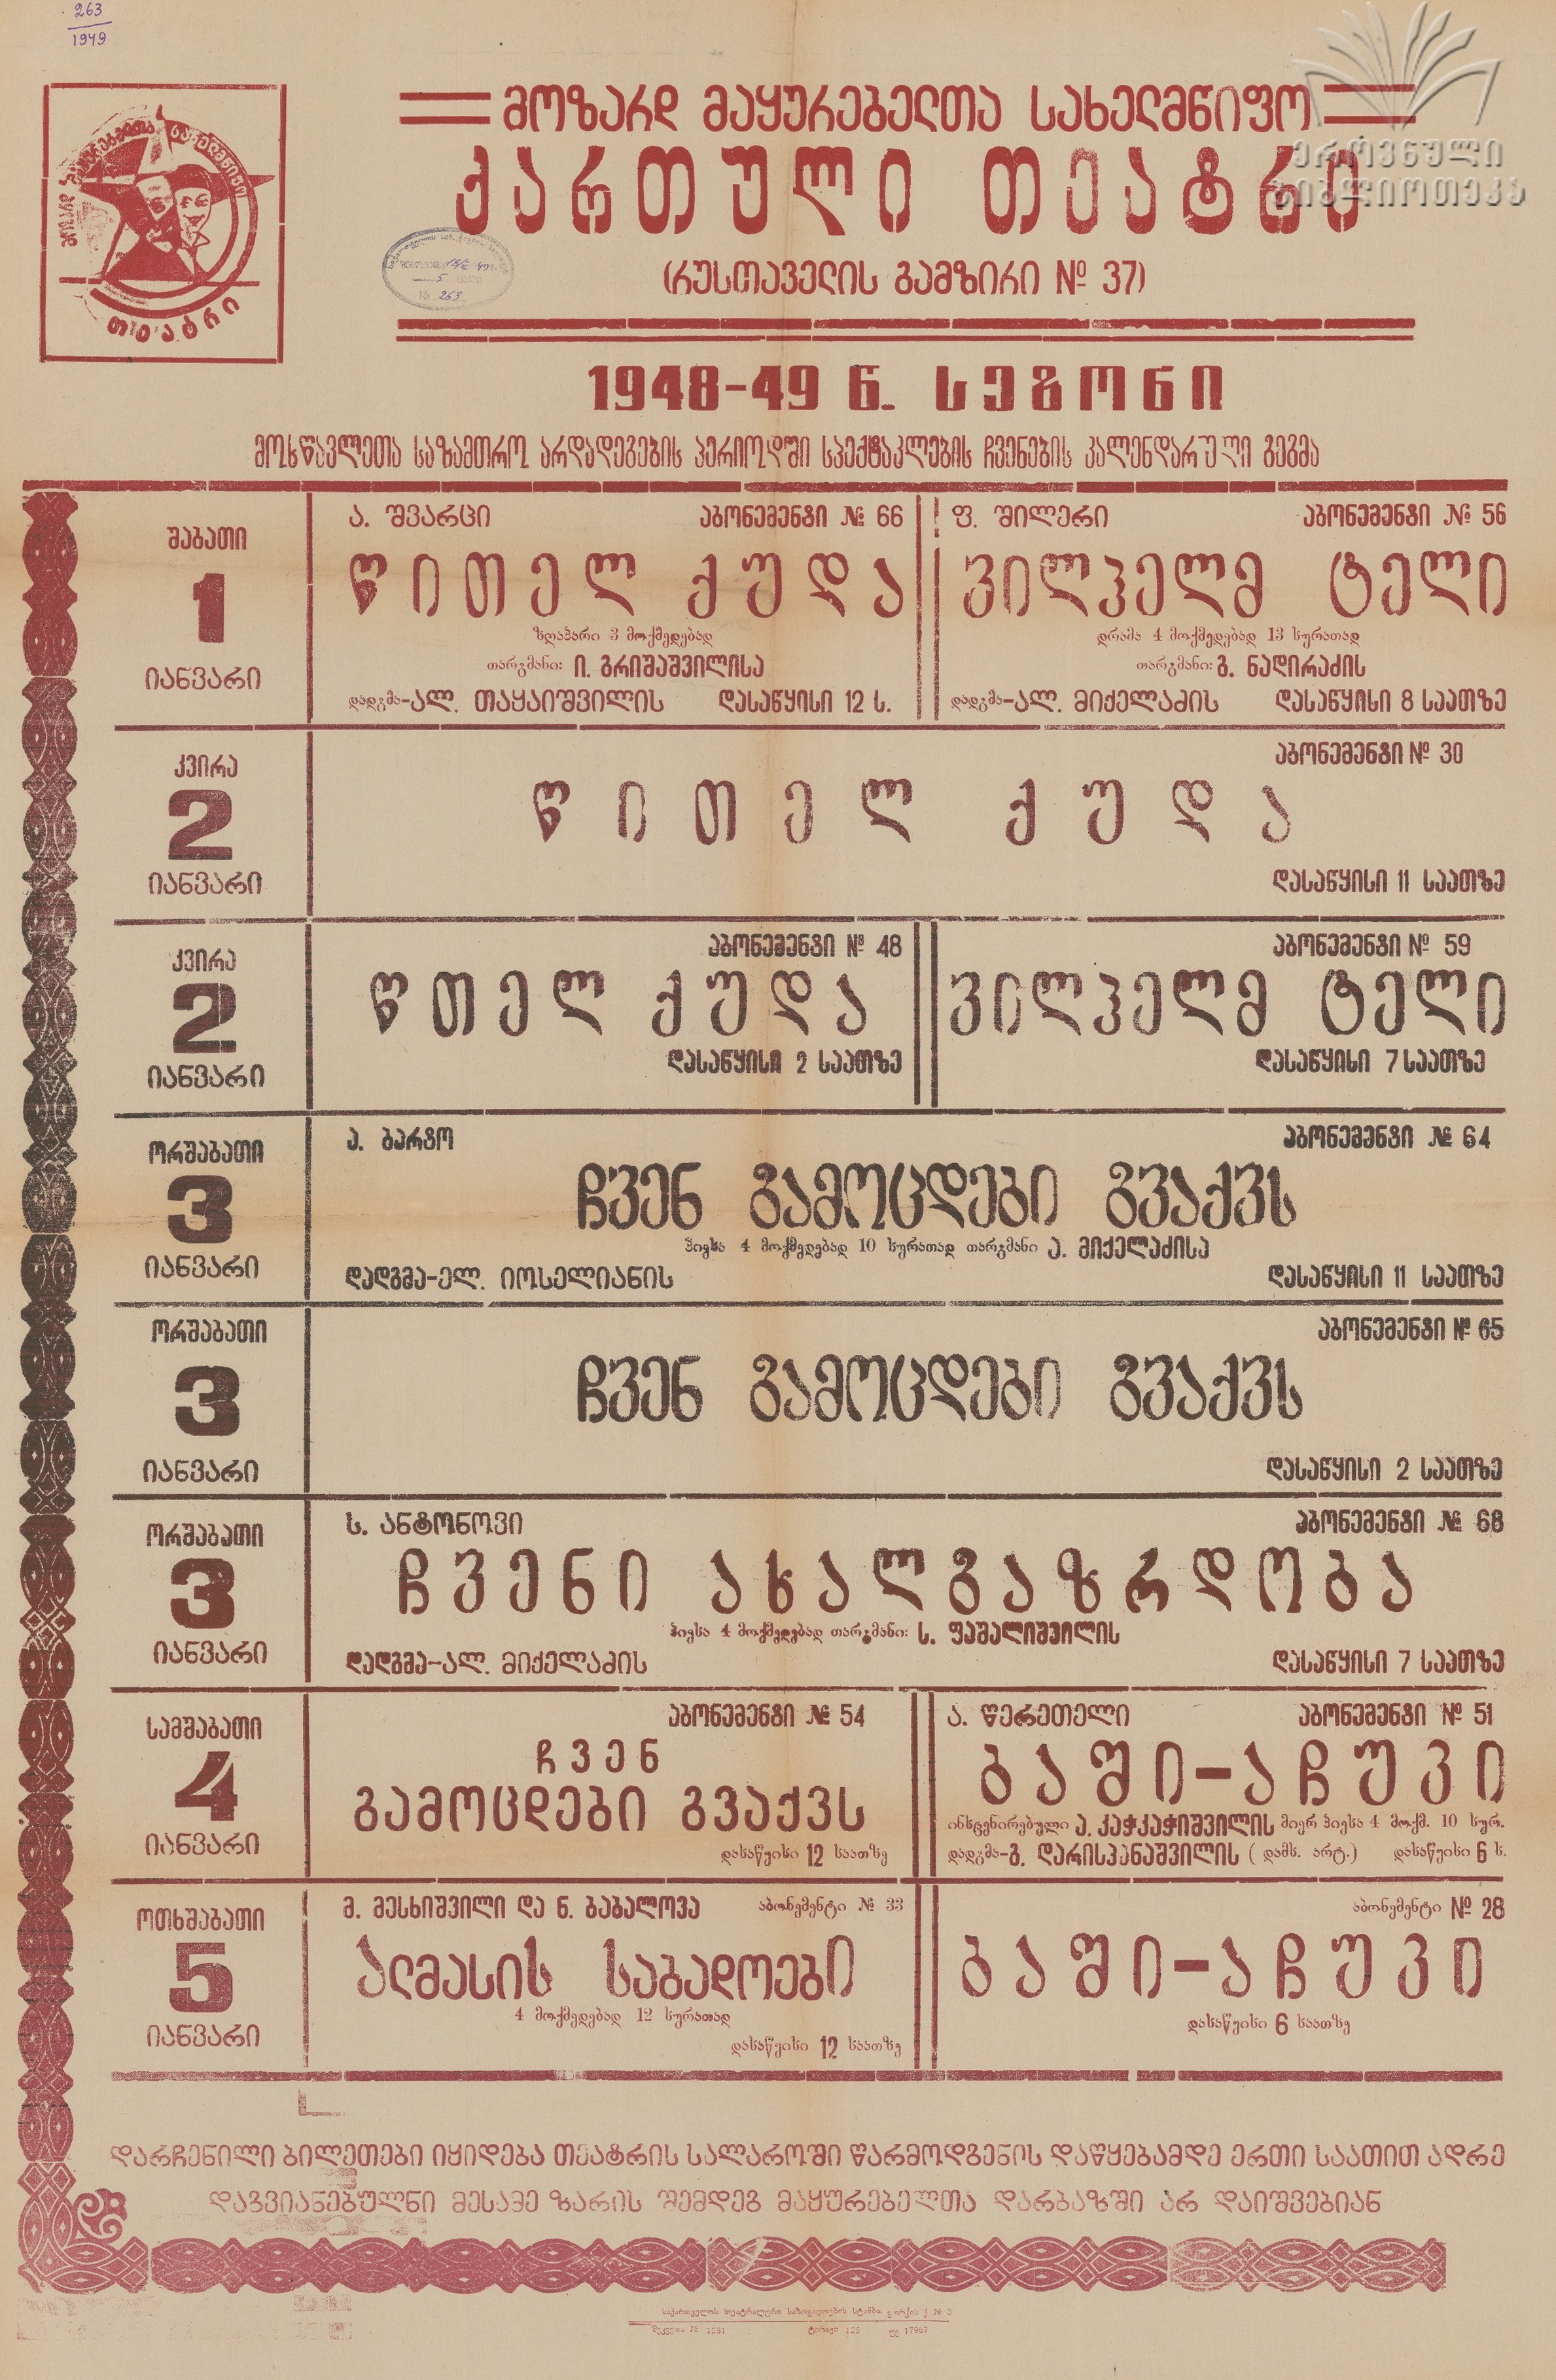 263
1949
მოზარდ მაყურებელთა სახელმწიფო
ქართული თეატრი
(რუსთაველის გამზირი № 37)
ეროვნული
ბიბლიოთეკა
მოზარდ მაყურებელთა სახელმწიფო
თეატრი
263
1948-49 წ. სეზონი
მოსწავლეთა საზამთრო არდადეგების პერიოდში სპექტაკლების ჩვენების კალენდარული გეგმა
შაბათი
1
იანვარი
ა. შვარცი აბონემენტი № 66
წითელ ქუდა
ზღაპარი 3 მოქმედებად
თარგმანი: ი. გრიშაშვილისა
დადგმა-ალ. თაყაიშვილის დასაწყისი 12 ს.
ფ. შილერი აბონემენტი № 56
ვილჰელმ ტელი
დრამა 4 მოქმედებად 13 სურათად
თარგმანი: გ. ნადირაძის
დადგმა-ალ. მიქელაძის დასაწყისი 8 საათზე
კვირა
2
იანვარი
აბონემენტი № 30
წითელ ქუდა
დასაწყისი 11 საათზე
კვირა
2
იანვარი
აბონემენტი № 48
წთელ ქუდა
დასაწყისი 2 საათზე
აბონემენტი № 59
ვილჰელმ ტელი
დასაწყისი 7 საათზე
ორშაბათი
3
იანვარი
ა. ბარტო აბონემენტი № 64
ჩვენ გამოცდები გვაქვს
პიესა 4 მოქმედებად 10 სურათად თარგმანი ა. მიქელაძისა
დადგმა-ელ. იოსელიანის დასაწყისი 11 საათზე
ორშაბათი
3
იანვარი
აბონემენტი № 65
ჩვენ გამოცდები გვაქვს
დასაწყისი 2 საათზე
ორშაბათი
3
იანვარი
ს. ანტონოვი აბონემენტი № 68
ჩვენი ახალგაზრდობა
პიესა 4 მოქმედებად თარგმანი: ს. ფაშალიშვილის
დადგმა-ალ. მიქელაძის დასაწყისი 7 საათზე
სამშაბათი
4
იანვარი
აბონემენტი № 54
ჩვენ
გამოცდები გვაქვს
დასაწყისი 12 საათზე
ა. წერეთელი აბონემენტი № 51
ბაში-აჩუკი
ინსცენირებული ა. კაჭკაჭიშვილის მიერ პიესა 4 მოქმ. 10 სურ.
დადგმა-გ. დარისპანაშვილის (დამს. არტ.) დასაწყისი 6 ს.
ოთხშაბათი
5
იანვარი
მ. მესხიშვილი და ნ. ბაბალოვა აბონემენტი № 33
ალმასის საბადოები
4 მოქმედებად 12 სურათად
დასაწყისი 12 საათზე
აბონემენტი № 28
ბაში-აჩუკი
დასაწყისი 6 საათზე
დარჩენილი ბილეთები იყიდება თეატრის სალაროში წარმოდგენის დაწყებამდე ერთი საათით ადრე
დაგვიანებულნი მესამე ზარის შემდეგ მაყურებელთა დარბაზში არ დაიშვებიან
საქართველოს თეატრალური საზოგადოების სტამბა
შეკვეთა № 1581 ტირაჟი 125 უე 17967